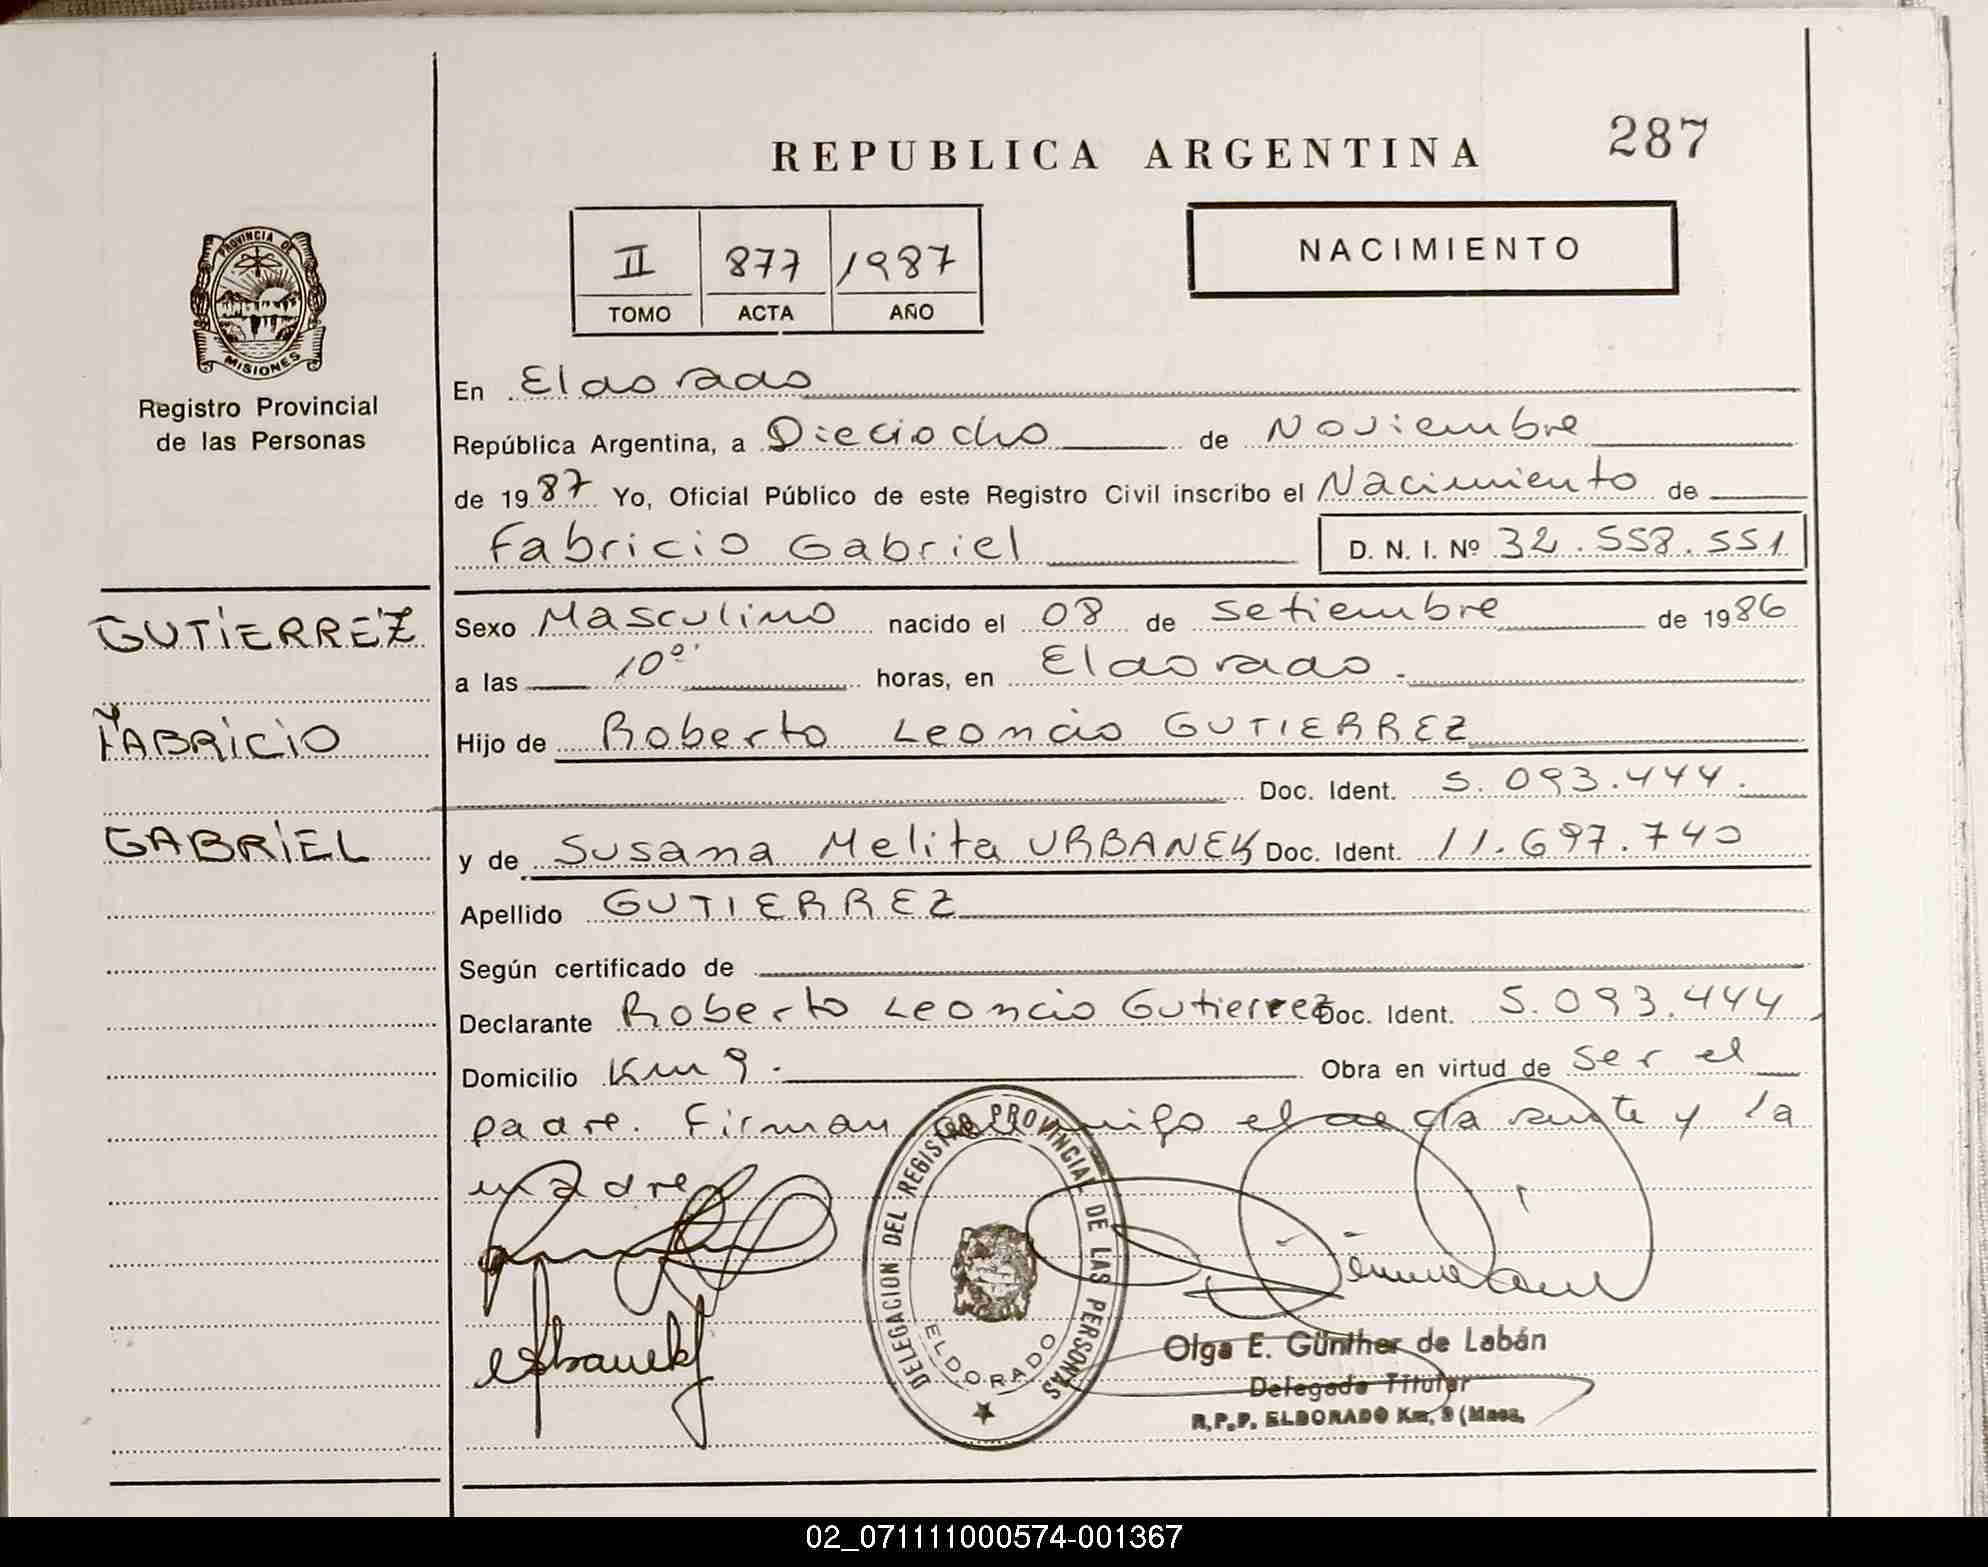 REPUBLICA ARGENTINA
287
II 877 1987
TOMO ACTA AÑO
NACIMIENTO
PROVINCIA DE
MISIONES
Registro Provincial
de las Personas
GUTIERREZ
FABRICIO
GABRIEL
En Eldorado
República Argentina, a Dieciocho de Noviembre
de 1987 Yo, Oficial Público de este Registro Civil inscribo el Nacimiento de
Fabricio Gabriel D. N. I. Nº 32.558.551
Sexo Masculino nacido el 08 de Setiembre de 1986
a las 10º horas, en Eldorado.
Hijo de Roberto Leoncio GUTIERREZ
Doc. Ident. 5.093.444.
y de Susana Melita URBANEK Doc. Ident. 11.697.740
Apellido GUTIERREZ
Según certificado de
Declarante Roberto Leoncio Gutierrez Doc. Ident. 5.093.444
Domicilio Km 9. Obra en virtud de ser el
padre. Firman conmigo el declarante y la
madre
DELEGACION DEL REGISTRO PROVINCIAL DE LAS PERSONAS
ELDORADO
Olga E. Günther de Labán
Delegada Titular
R.P.P. ELDORADO Km. 9 (Mnes.
02_071111000574-001367